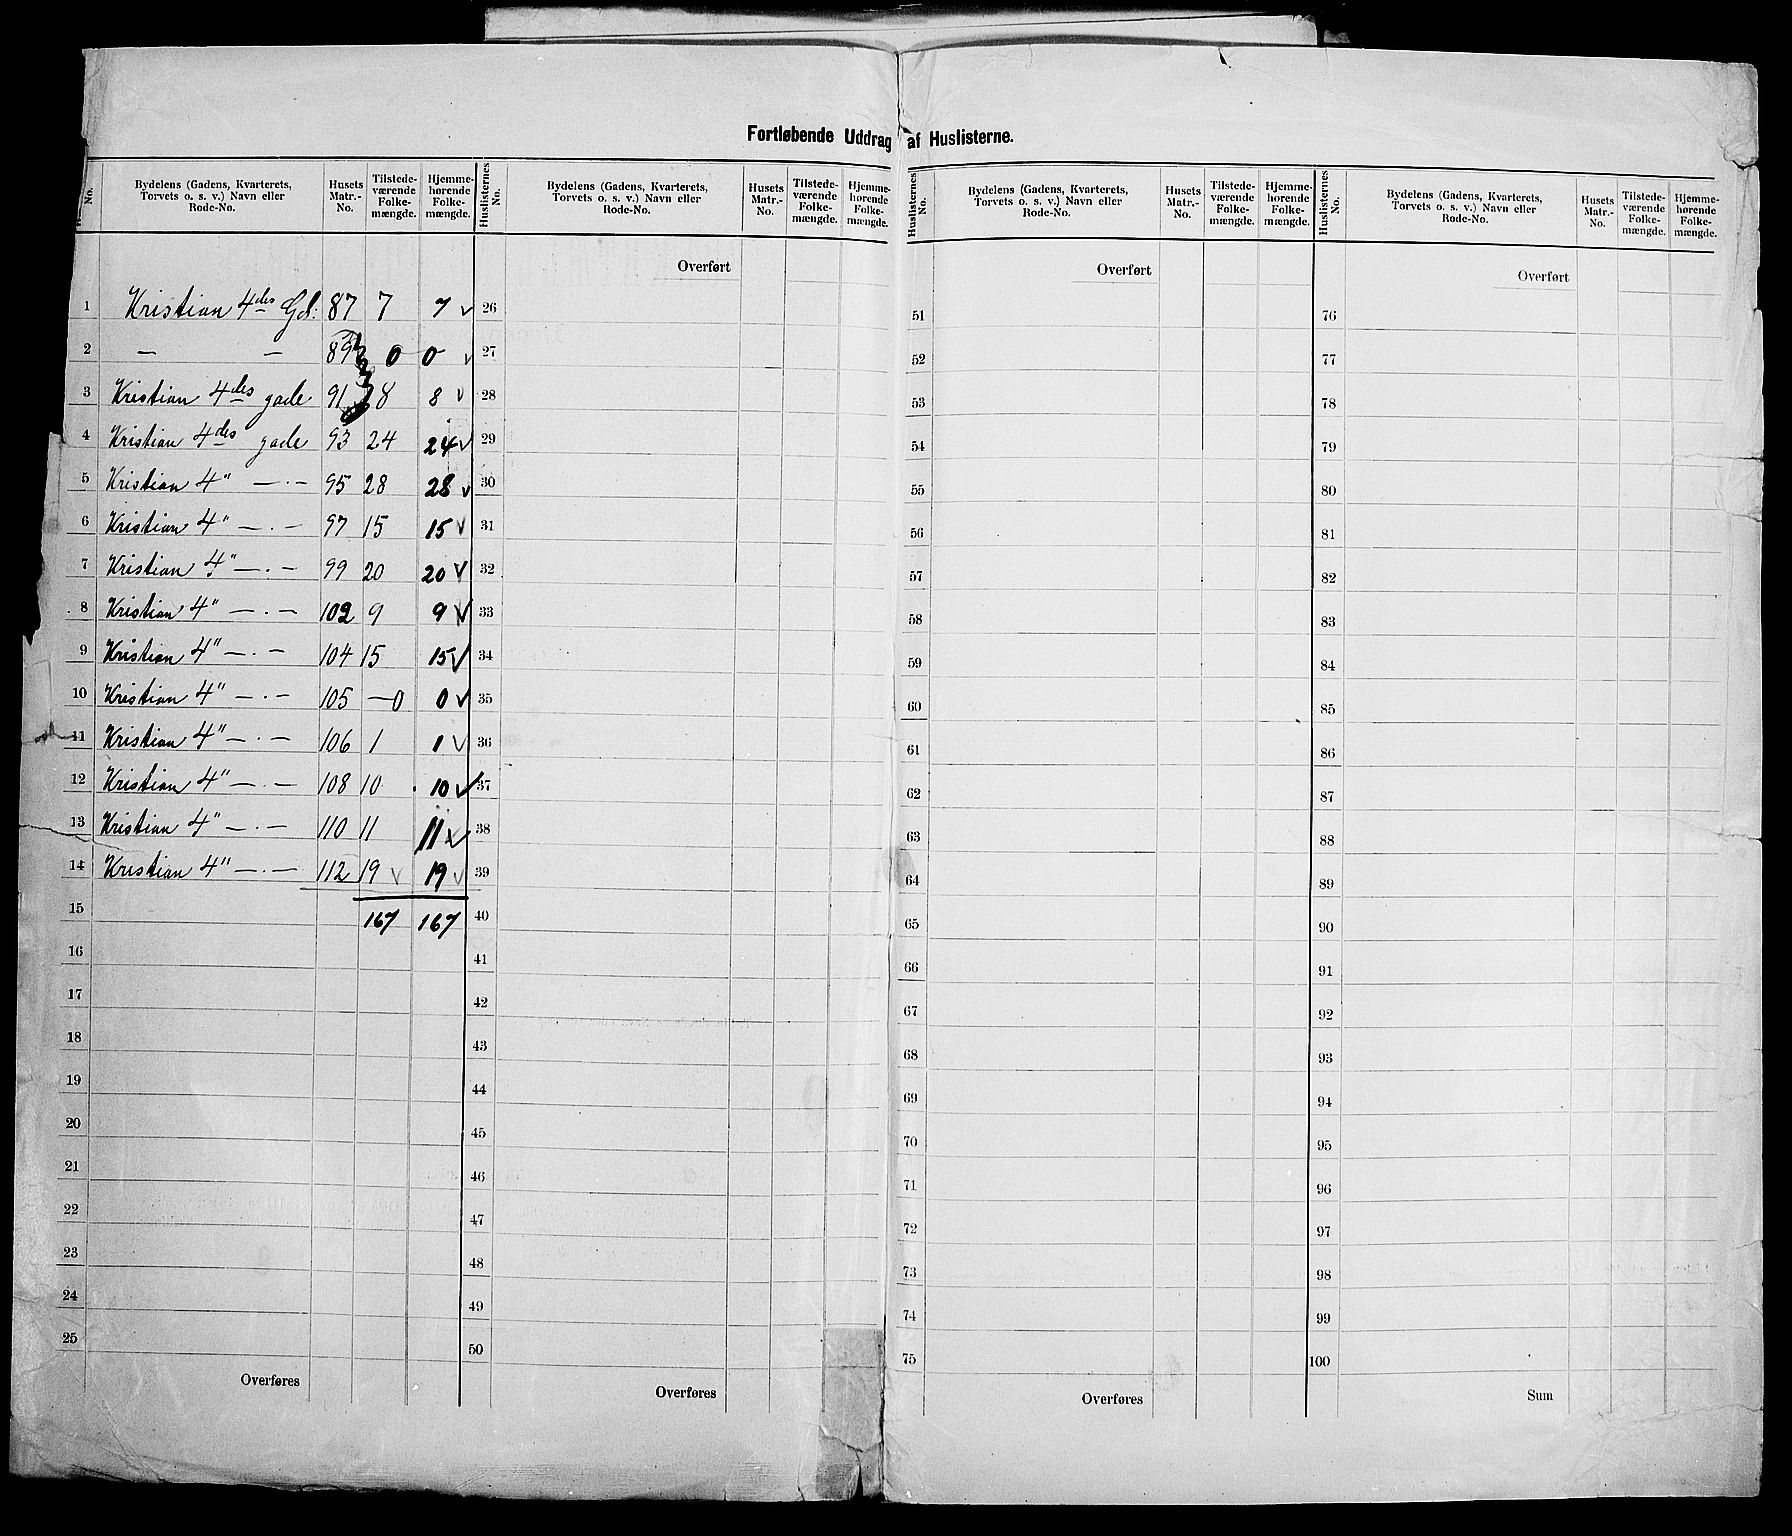 Fortløbende Uddrag af Huslisterne.
No. Bydelens (Gadens, Kvarterets, Torvets o. s. v.) Navn eller Rode-No. Husets Matr.-No. Tilstede-værende Folke-mængde. Hjemme-hørende Folke-mængde.
1 Kristian 4des Gd: 87 7 7 v
2 — — 89 0 0 v
3 Kristian 4des gade 91 8 8 v
4 Kristian 4des gade 93 24 24 v
5 Kristian 4" — . — 95 28 28 v
6 Kristian 4" — . — 97 15 15 v
7 Kristian 4" — . — 99 20 20 v
8 Kristian 4" — . — 102 9 9 v
9 Kristian 4" — . — 104 15 15 v
10 Kristian 4" — . — 105 —0 0 v
11 Kristian 4" — . — 106 1 1 v
12 Kristian 4" — . — 108 10 10 v
13 Kristian 4" — . — 110 11 11 v
14 Kristian 4" — . — 112 19 v 19 v
15 167 167
16
17
18
19
20
21
22
23
24
25
Overføres
Huslisternes No. Bydelens (Gadens, Kvarterets, Torvets o. s. v.) Navn eller Rode-No. Husets Matr.-No. Tilstede-værende Folke-mængde. Hjemme-hørende Folke-mængde.
Overført
26
27
28
29
30
31
32
33
34
35
36
37
38
39
40
41
42
43
44
45
46
47
48
49
50
Overføres
Huslisternes No. Bydelens (Gadens, Kvarterets, Torvets o. s. v.) Navn eller Rode-No. Husets Matr.-No. Tilstede-værende Folke-mængde. Hjemme-hørende Folke-mængde.
Overført
51
52
53
54
55
56
57
58
59
60
61
62
63
64
65
66
67
68
69
70
71
72
73
74
75
Overføres
Huslisternes No. Bydelens (Gadens, Kvarterets, Torvets o. s. v.) Navn eller Rode-No. Husets Matr.-No. Tilstede-værende Folke-mængde. Hjemme-hørende Folke-mængde.
Overført
76
77
78
79
80
81
82
83
84
85
86
87
88
89
90
91
92
93
94
95
96
97
98
99
100
Sum